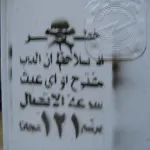 خطر
عند ملاحظة ان الباب
مفتوح او اي عبث
سرعة الاتصال
برقم ١٢١ مجانا